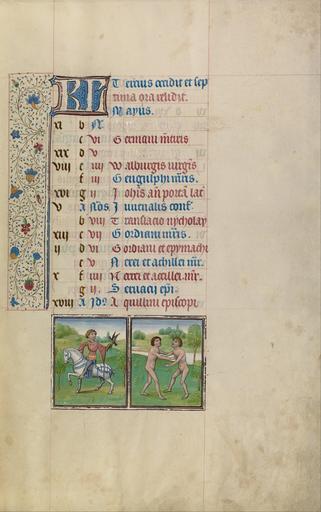 KL Tercius occidit et sep
tima ora relidit.
Mayus.
xi b
c vi martiris
xix d v
viii e iiii Walburgis virgīs
f iii Gengulphi mīris.
xvi g ii Johīs añ portā lat
v A Nos. Juvenalis conf.
b viii Translacio nycholay
xiii c vii Gordiani mīris.
ii d vi Gordiani et epymachi
e v Nerei et achillei mr.
x f iiii Nerei et accillei mr.
g ii Servacii epī.
xviii A Id9 Aquillini episcopi